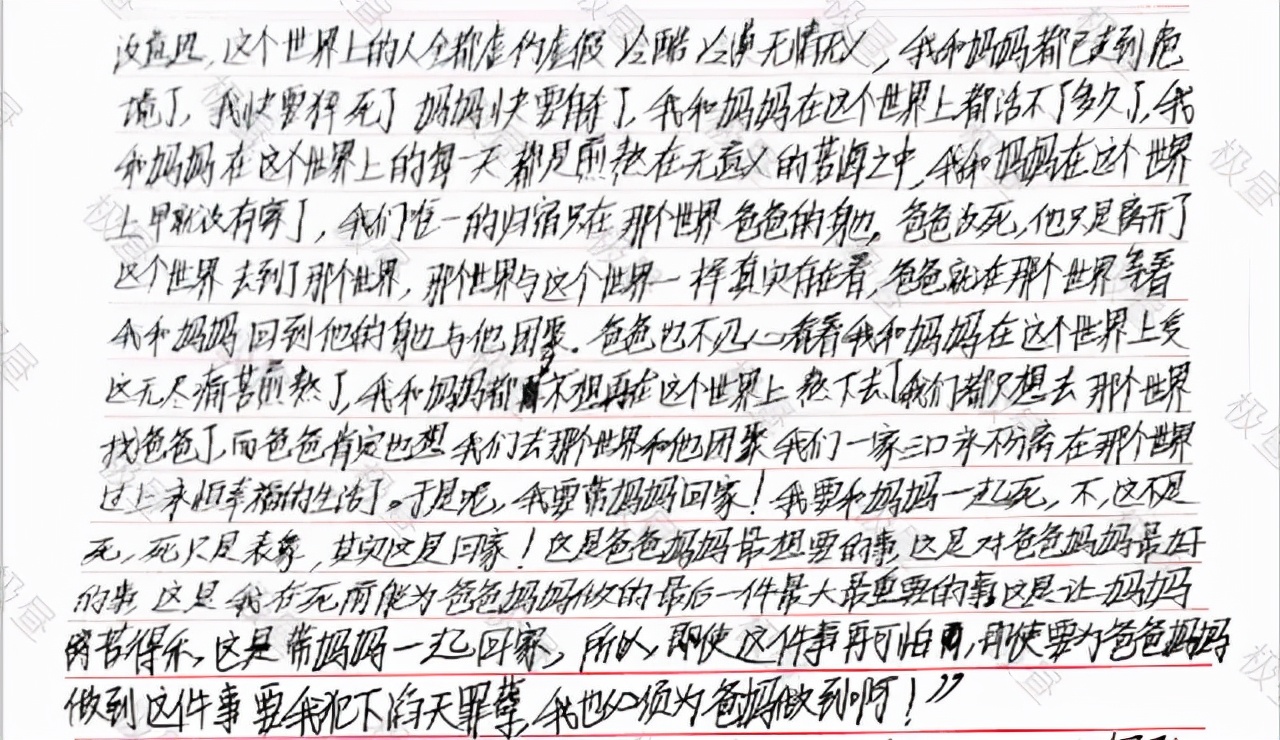 没意思，这个世界上的人全都虚伪虚假冷酷冷漠无情无义，我和妈妈都已走到绝
境了，我快要猝死了妈妈快要自杀了，我和妈妈在这个世界上都活不了多久了，我
和妈妈在这个世界上的每一天都是煎熬在无意义的苦海之中，我和妈妈在这个世界
上早就没有家了，我们唯一的归宿只在那个世界爸爸的身边。爸爸没死，他只是离开了
这个世界去到了那个世界，那个世界与这个世界一样真实存在着，爸爸就在那个世界等着
我和妈妈回到他的身边与他团聚。爸爸也不忍心看着我和妈妈在这个世界上受
这无尽痛苦煎熬了，我和妈妈都不想再在这个世界上熬下去了我们都只想去那个世界
找爸爸了，而爸爸肯定也想我们去那个世界和他团聚我们一家三口永不分离在那个世界
过上永恒幸福的生活了。于是呢，我要带妈妈回家！我要和妈妈一起死，不，这不是
死，死只是表象，其实这是回家！这是爸爸妈妈最想要的事，这是对爸爸妈妈最好
的事，这是我在死前能为爸爸妈妈做的最后一件最大最重要的事，这是让妈妈
离苦得乐，这是带妈妈一起回家，所以，即使这件事再可怕，即使要为爸爸妈妈
做到这件事要我犯下滔天罪孽，我也必须为爸妈做到啊！”
极昼